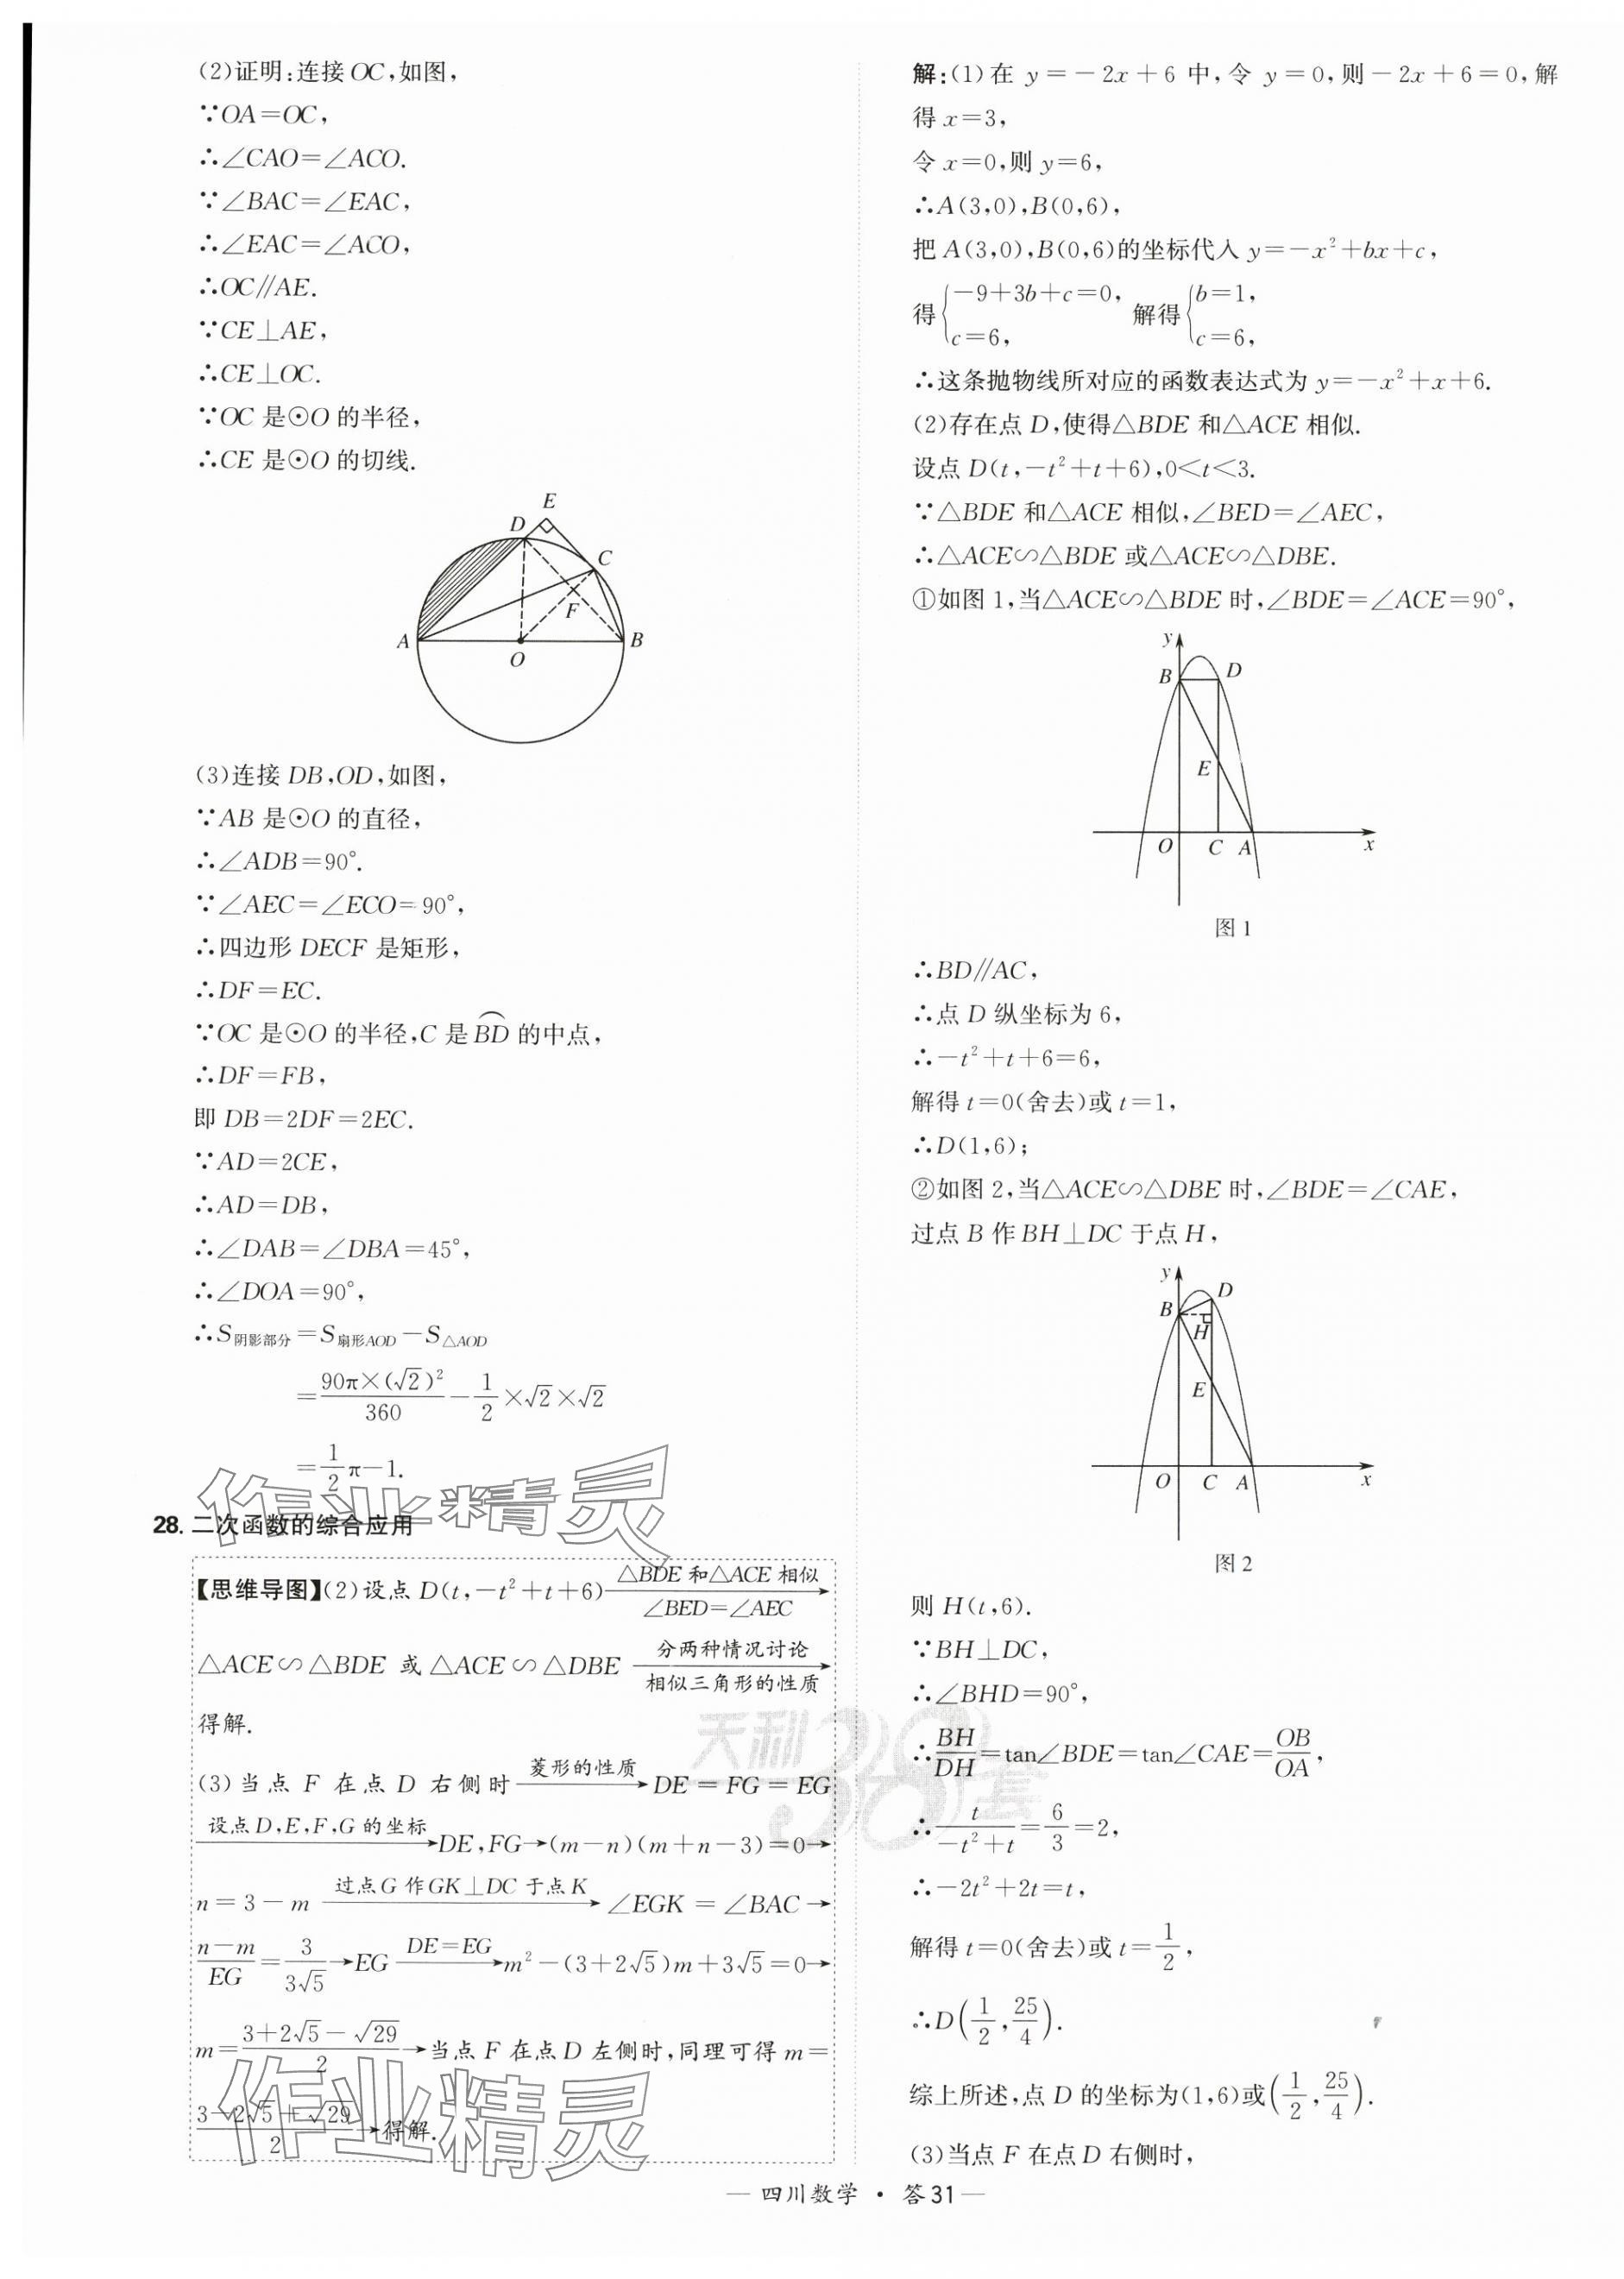 (2)证明:连接 OC,如图,
∵OA=OC,
∴∠CAO=∠ACO.
∵∠BAC=∠EAC,
∴∠EAC=∠ACO,
∴OC∥AE.
∵CE⊥AE,
∴CE⊥OC.
∵OC 是⊙O 的半径,
∴CE 是⊙O 的切线.
E
D
C
F
A
B
O
(3)连接 DB,OD,如图,
∵AB 是⊙O 的直径,
∴∠ADB=90°.
∵∠AEC=∠ECO=90°,
∴四边形 DECF 是矩形,
∴DF=EC.
∵OC 是⊙O 的半径,C 是 \overset{⌒}{BD} 的中点,
∴DF=FB,
即 DB=2DF=2EC.
∵AD=2CE,
∴AD=DB,
∴∠DAB=∠DBA=45°,
∴∠DOA=90°,
∴S阴影部分=S扇形AOD−S△AOD
=\frac{90π×(√2)²}{360}−\frac{1}{2}×√2×√2
=\frac{1}{2}π−1.
作业精灵
28. 二次函数的综合应用
【思维导图】(2)设点 D(t,−t²+t+6) \xrightarrow[∠BED=∠AEC]{△BDE 和△ACE 相似}
△ACE∽△BDE 或△ACE∽△DBE \xrightarrow[相似三角形的性质]{分两种情况讨论}
得解.
(3)当点 F 在点 D 右侧时 \xrightarrow{菱形的性质} DE=FG=EG
\xrightarrow{设点 D,E,F,G 的坐标} DE,FG→(m−n)(m+n−3)=0→
n=3−m \xrightarrow{过点 G 作 GK⊥DC 于点 K} ∠EGK=∠BAC→
\frac{n−m}{EG}=\frac{3}{3√5}→EG \xrightarrow{DE=EG} m²−(3+2√5)m+3√5=0→
m=\frac{3+2√5−√29}{2}→当点 F 在点 D 左侧时,同理可得 m=
\frac{3−2√5+√29}{2}→得解.
作业精灵
解:(1)在 y=−2x+6 中,令 y=0,则−2x+6=0,解
得 x=3,
令 x=0,则 y=6,
∴A(3,0),B(0,6),
把 A(3,0),B(0,6)的坐标代入 y=−x²+bx+c,
得{−9+3b+c=0, c=6, 解得{b=1, c=6,
∴这条抛物线所对应的函数表达式为 y=−x²+x+6.
(2)存在点 D,使得△BDE 和△ACE 相似.
设点 D(t,−t²+t+6),0<t<3.
∵△BDE 和△ACE 相似,∠BED=∠AEC,
∴△ACE∽△BDE 或△ACE∽△DBE.
①如图 1,当△ACE∽△BDE 时,∠BDE=∠ACE=90°,
y
B
D
E
O
C
A
x
图 1
∴BD∥AC,
∴点 D 纵坐标为 6,
∴−t²+t+6=6,
解得 t=0(舍去)或 t=1,
∴D(1,6);
②如图 2,当△ACE∽△DBE 时,∠BDE=∠CAE,
过点 B 作 BH⊥DC 于点 H,
y
D
B
H
E
O
C
A
x
图 2
则 H(t,6).
∵BH⊥DC,
∴∠BHD=90°,
∴\frac{BH}{DH}=tan∠BDE=tan∠CAE=\frac{OB}{OA},
∴\frac{t}{−t²+t}=\frac{6}{3}=2,
∴−2t²+2t=t,
解得 t=0(舍去)或 t=\frac{1}{2},
∴D(\frac{1}{2},\frac{25}{4}).
综上所述,点 D 的坐标为(1,6)或(\frac{1}{2},\frac{25}{4}).
(3)当点 F 在点 D 右侧时,
天利38套
— 四川数学 · 答31 —